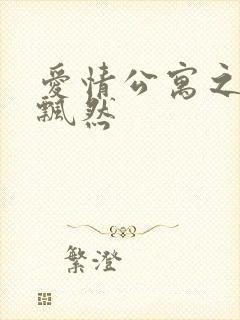 愛情公寓之
飄然
繁澄